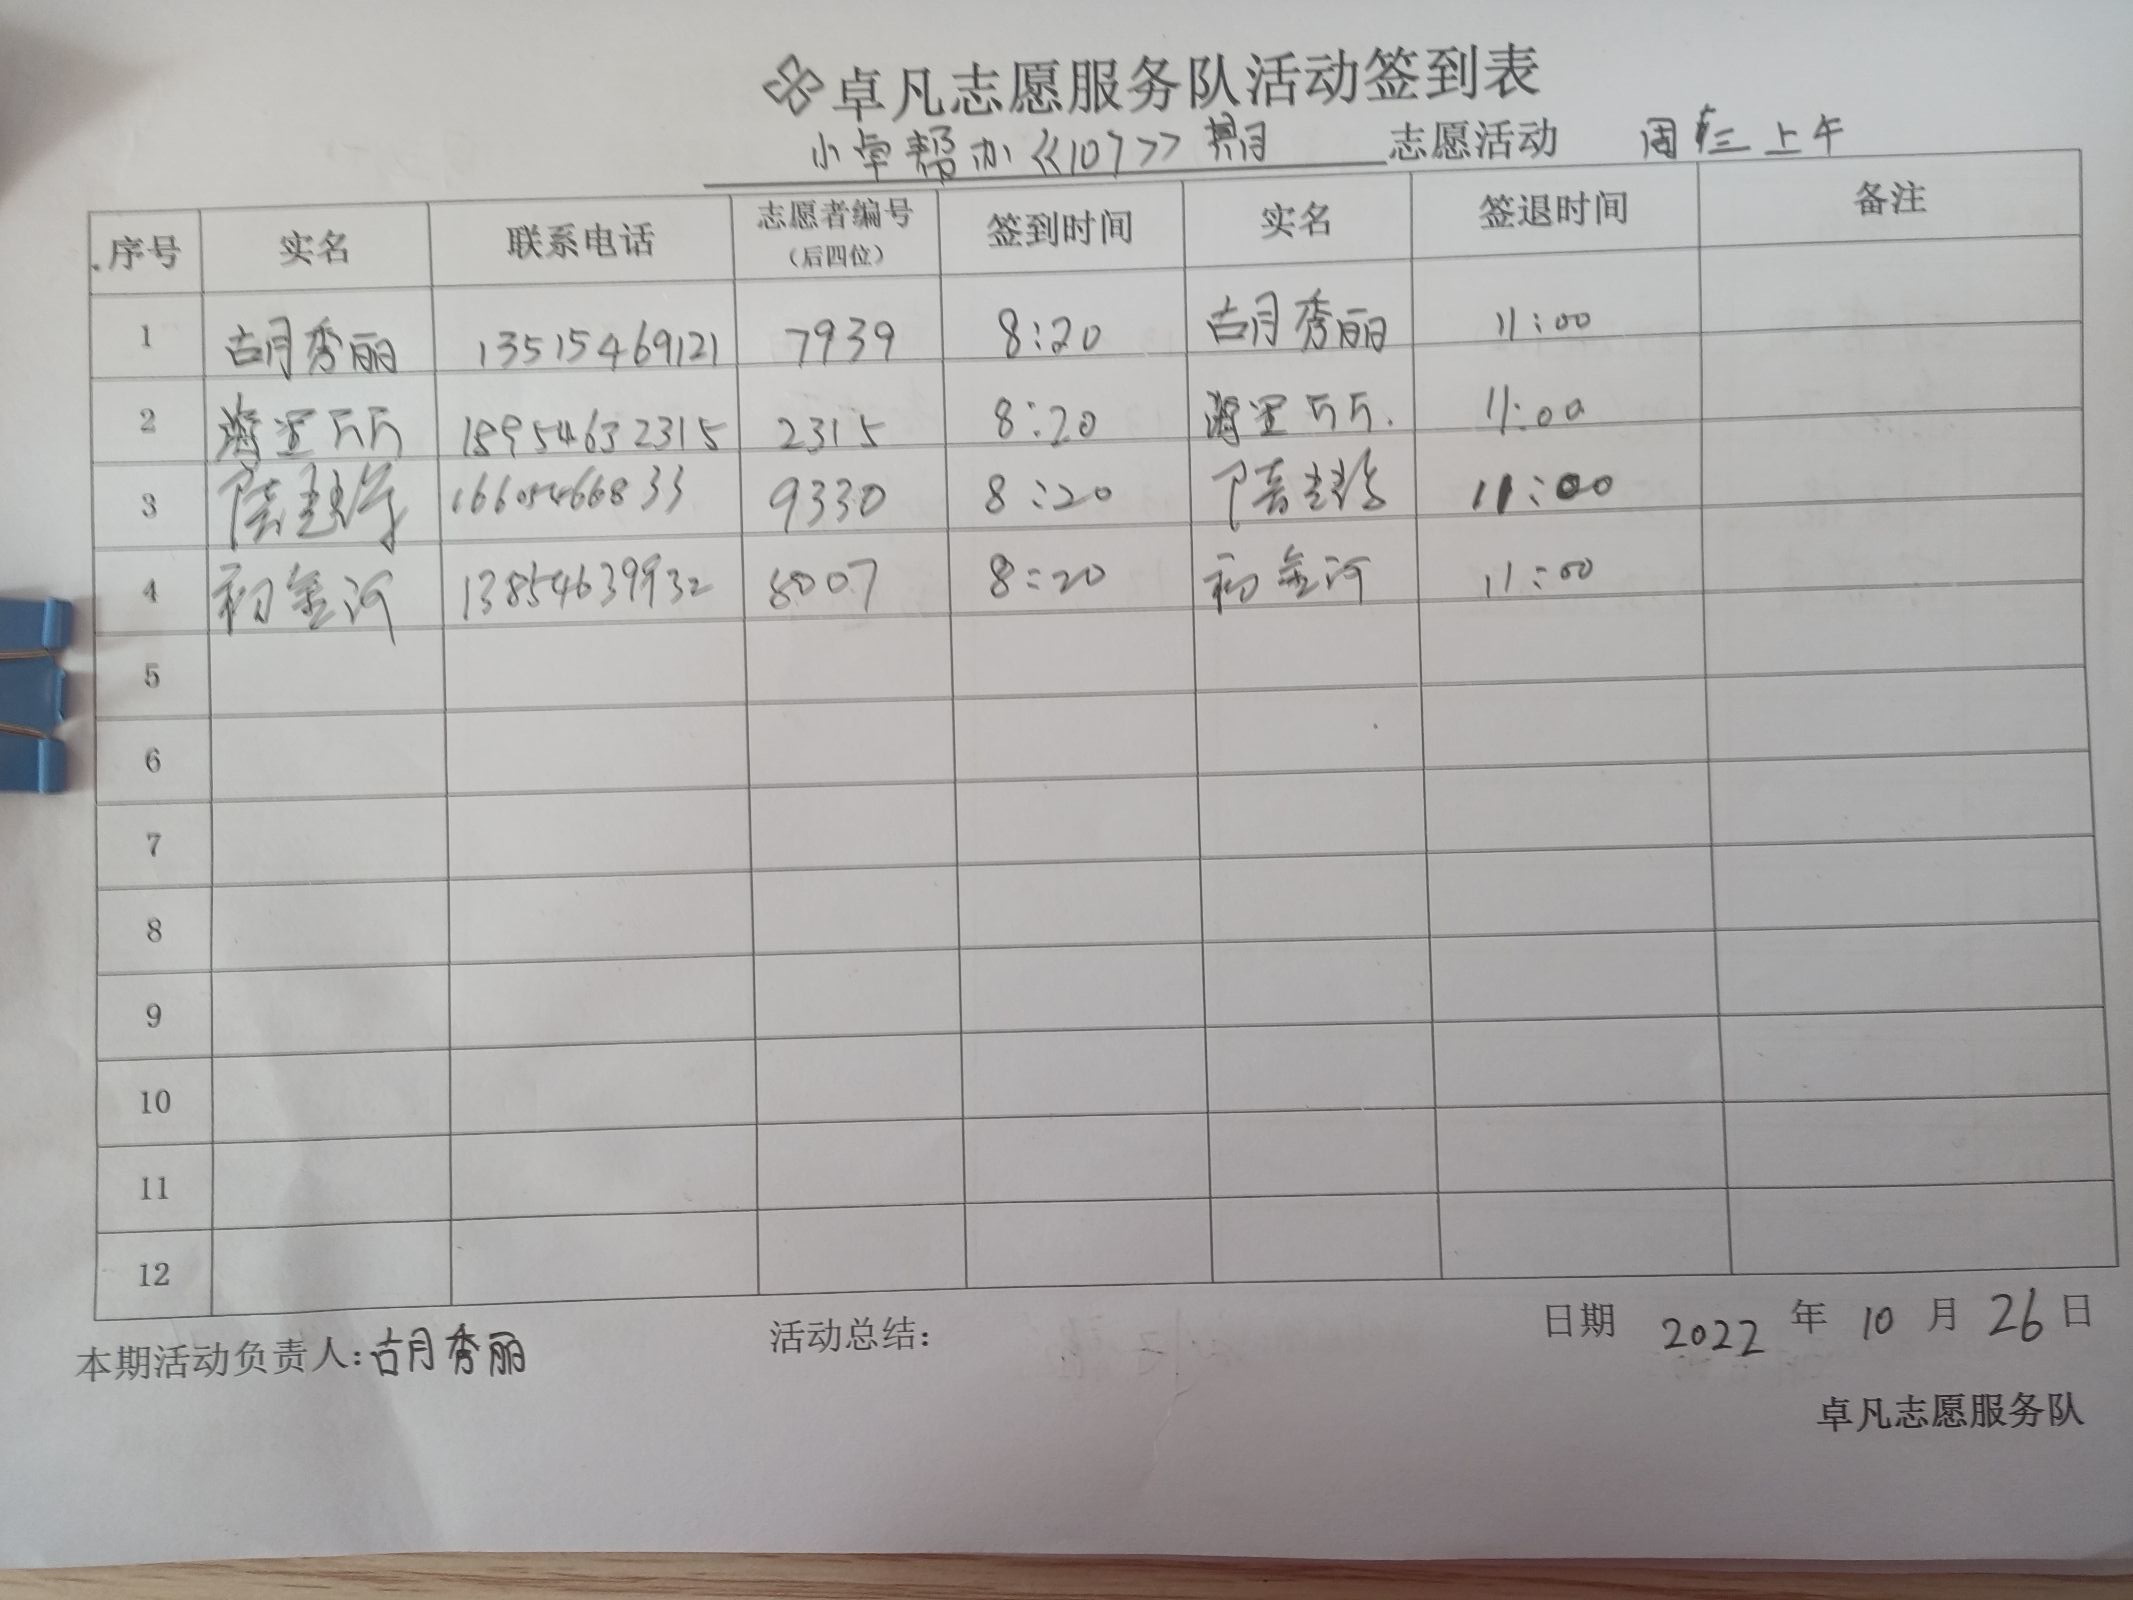 卓凡志愿服务队活动签到表
小卓帮办《107》期 志愿活动 周三上午
序号 实名 联系电话 志愿者编号（后四位） 签到时间 实名 签退时间 备注
1 胡秀丽 13515469121 7939 8:20 胡秀丽 11:00
2 18954632315 2315 8:20 11:00
3 16605466833 9330 8:20 11:00
4 初金河 13854639932 8:20 初金河 11:00
5
6
7
8
9
10
11
12
本期活动负责人:胡秀丽 活动总结: 日期 2022 年 10 月 26 日
卓凡志愿服务队